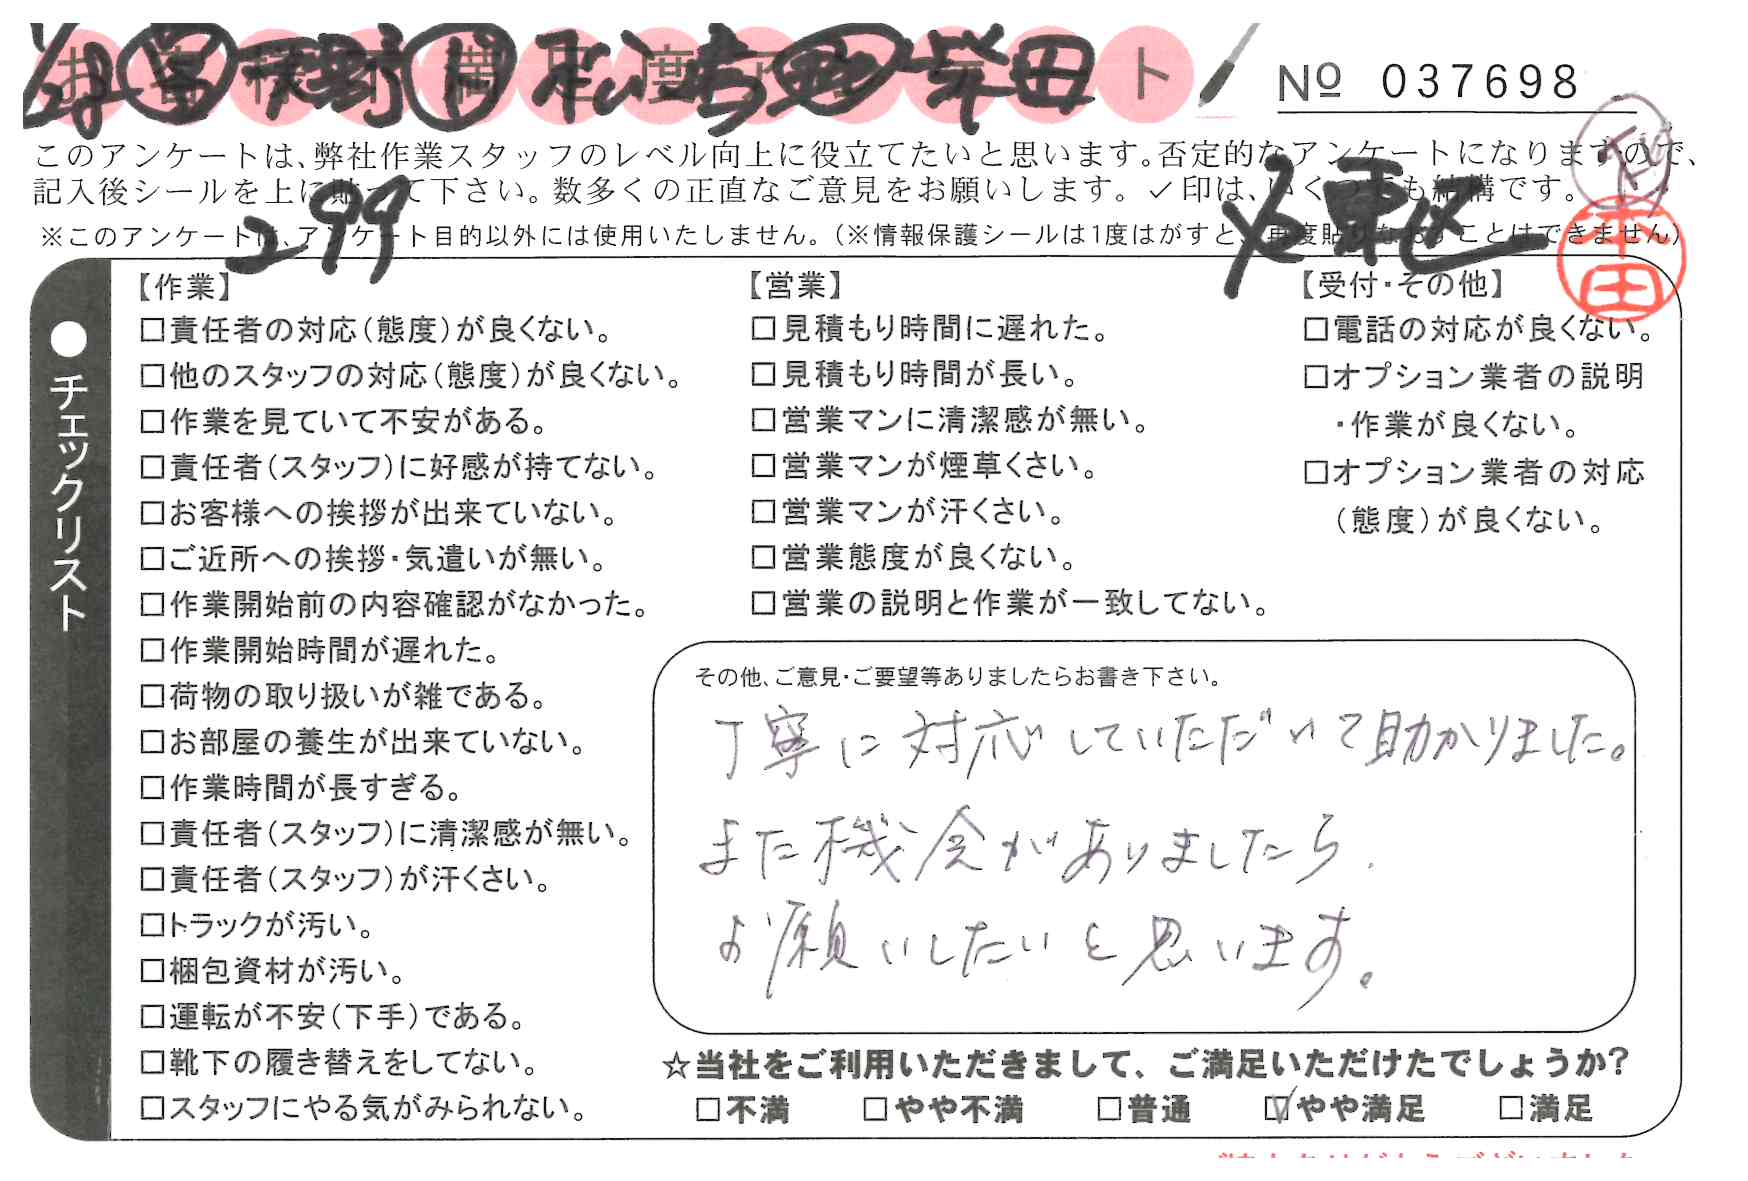 お客様不満足度アンケート
1/28 天野 松 吉 柴田
№ 037698
このアンケートは、弊社作業スタッフのレベル向上に役立てたいと思います。否定的なアンケートになりますので、
記入後シールを上に貼って下さい。数多くの正直なご意見をお願いします。✓印は、いくつでも結構です。
※このアンケートは、アンケート目的以外には使用いたしません。(※情報保護シールは1度はがすと、再度貼りなおすことはできません)
299
本田
●チェックリスト
【作業】
□責任者の対応(態度)が良くない。
□他のスタッフの対応(態度)が良くない。
□作業を見ていて不安がある。
□責任者(スタッフ)に好感が持てない。
□お客様への挨拶が出来ていない。
□ご近所への挨拶・気遣いが無い。
□作業開始前の内容確認がなかった。
□作業開始時間が遅れた。
□荷物の取り扱いが雑である。
□お部屋の養生が出来ていない。
□作業時間が長すぎる。
□責任者(スタッフ)に清潔感が無い。
□責任者(スタッフ)が汗くさい。
□トラックが汚い。
□梱包資材が汚い。
□運転が不安(下手)である。
□靴下の履き替えをしてない。
□スタッフにやる気がみられない。
【営業】
□見積もり時間に遅れた。
□見積もり時間が長い。
□営業マンに清潔感が無い。
□営業マンが煙草くさい。
□営業マンが汗くさい。
□営業態度が良くない。
□営業の説明と作業が一致してない。
【受付・その他】
□電話の対応が良くない。
□オプション業者の説明
・作業が良くない。
□オプション業者の対応
(態度)が良くない。
その他、ご意見・ご要望等ありましたらお書き下さい。
丁寧に対応していただいて助かりました。
また機会がありましたら
お願いしたいと思います。
☆当社をご利用いただきまして、ご満足いただけたでしょうか?
□不満 □やや不満 □普通 ☑やや満足 □満足